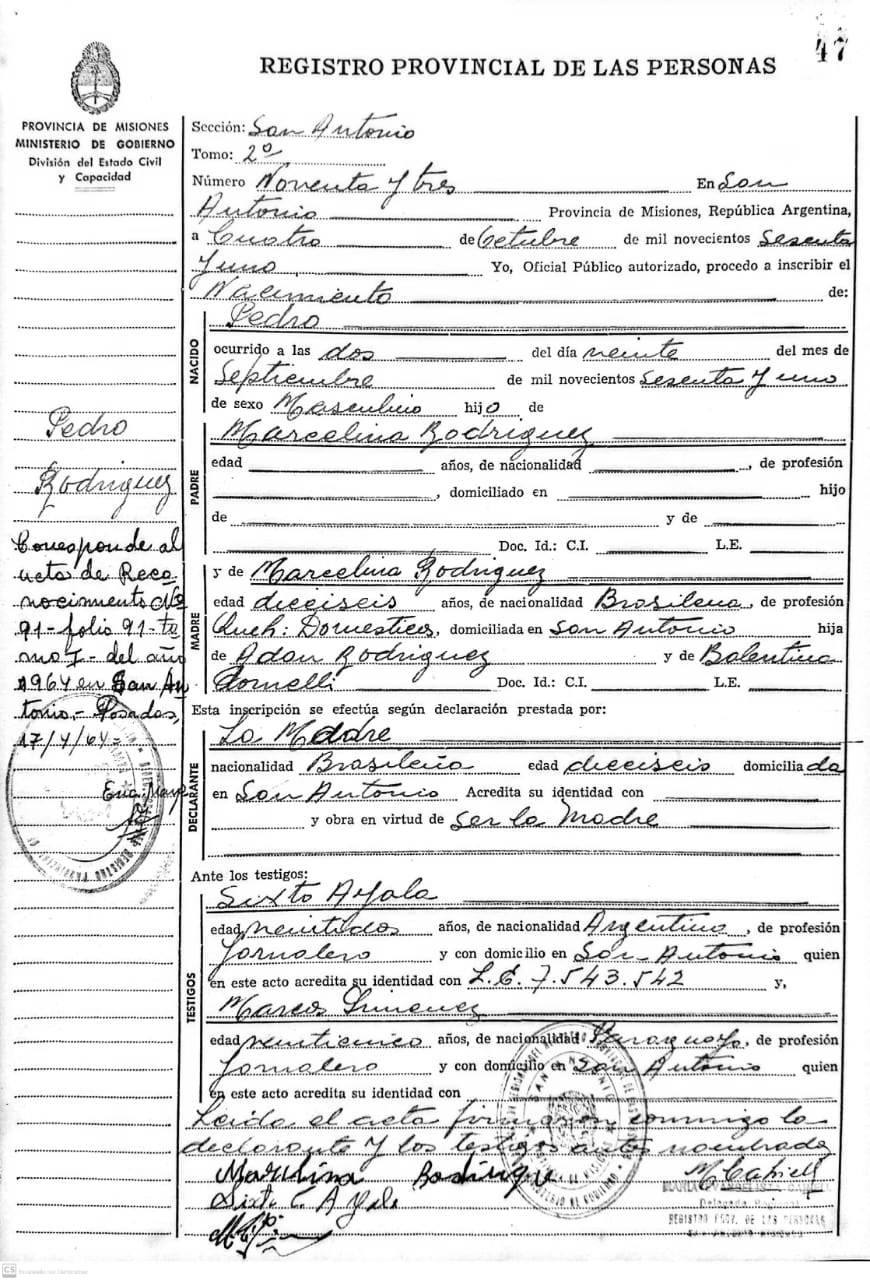 47
REGISTRO PROVINCIAL DE LAS PERSONAS
PROVINCIA DE MISIONES
MINISTERIO DE GOBIERNO
División del Estado Civil
y Capacidad
Sección: San Antonio
Tomo: 2º
Número Noventa y tres En San
Antonio Provincia de Misiones, República Argentina,
a Cuatro de Octubre de mil novecientos Sesenta
y uno Yo, Oficial Público autorizado, procedo a inscribir el
Nacimiento de:
NACIDO
Pedro
ocurrido a las dos del día veinte del mes de
Septiembre de mil novecientos Sesenta y uno
de sexo Masculino hijo de
PADRE
Marcelina Rodriguez
edad años, de nacionalidad , de profesión
, domiciliado en hijo
de y de
Doc. Id.: C.I. L.E.
MADRE
y de Marcelina Rodriguez
edad dieciseis años, de nacionalidad Brasileña, de profesión
Queh: Domesticos, domiciliada en San Antonio hija
de Adan Rodriguez y de Balentina
Dornelli Doc. Id.: C.I. L.E.
Esta inscripción se efectúa según declaración prestada por:
DECLARANTE
La Madre
nacionalidad Brasileña edad dieciseis domiciliada
en San Antonio Acredita su identidad con
y obra en virtud de Ser la Madre
Ante los testigos:
TESTIGOS
Sixto Ayala
edad veintidos años, de nacionalidad Argentino, de profesión
Jornalero y con domicilio en San Antonio quien
en este acto acredita su identidad con L.E. 7.543.542 y,
Marcos Gimenez
edad veinticinco años, de nacionalidad Paraguayo, de profesión
Jornalero y con domicilio en San Antonio quien
en este acto acredita su identidad con
Leida el acta firmaron conmigo la
declarante y los testigos antes nombrados
Marcelina Rodrigue
Sixto C. Ayala
REGISTRO PROV. DE LAS PERSONAS
Pedro
Rodriguez
Corresponde al
acta de Reco
nocimiento Nº
91-folio 91-to
mo I- del año
1964 en San An
tonio.- Posadas,
17/4/64=
CS